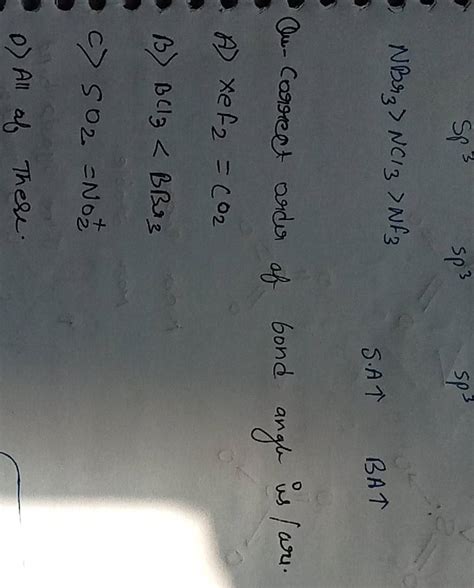 sp³ sp³ sp³
NBr₃ > NCl₃ > NF₃ S.A↑ BA↑
Qu- Correct order of bond angle is/are.
A) XeF₂ = CO₂
B) BCl₃ < BBr₃
C) SO₂ = NO₂⁺
D) All of These.